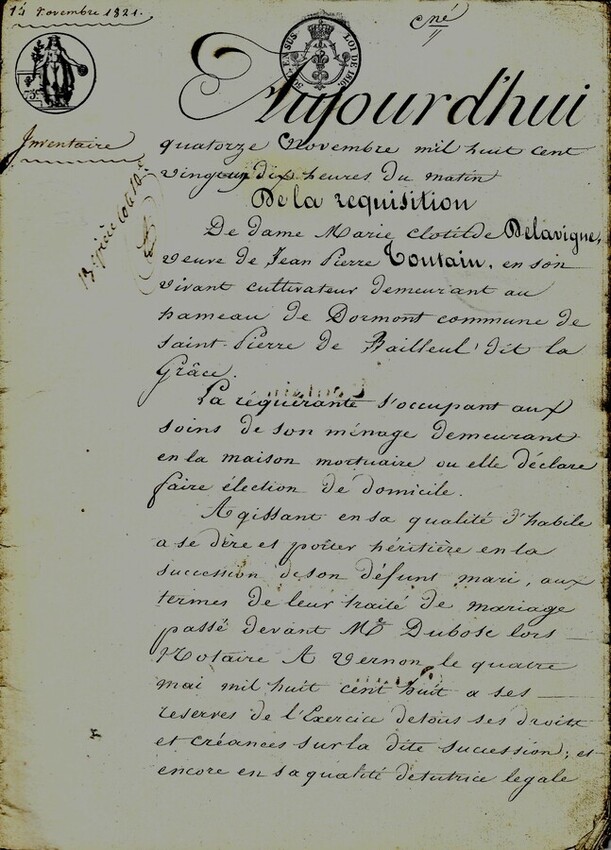 14 Novembre 1821.
cné
75c
EN SUS
LOI DE 1816.
Inventaire
Aujourd'hui
quatorze Novembre mil huit cent
vingt un dix heures du matin
De la requisition
De dame Marie Clotilde Delavigne,
veuve de Jean Pierre Toutain, en son
vivant cultivateur demeurant au
hameau de Dormont commune de
Saint-Pierre de Bailleul dit la
Grâce.
La réquérante s'occupant aux
soins de son ménage demeurant
en la maison mortuaire ou elle déclare
faire élection de domicile.
Agissant en sa qualité d'habile
a se dire et porter héritière en la
succession de son défunt mari, aux
termes de leur traité de mariage
passé devant Me Dubosc lors
Notaire A Vernon, le quatre
mai mil huit cent huit a ses
reserves de l'Exercice de tous ses droits
et créances sur la dite succession; et
encore en sa qualité de tutrice legale